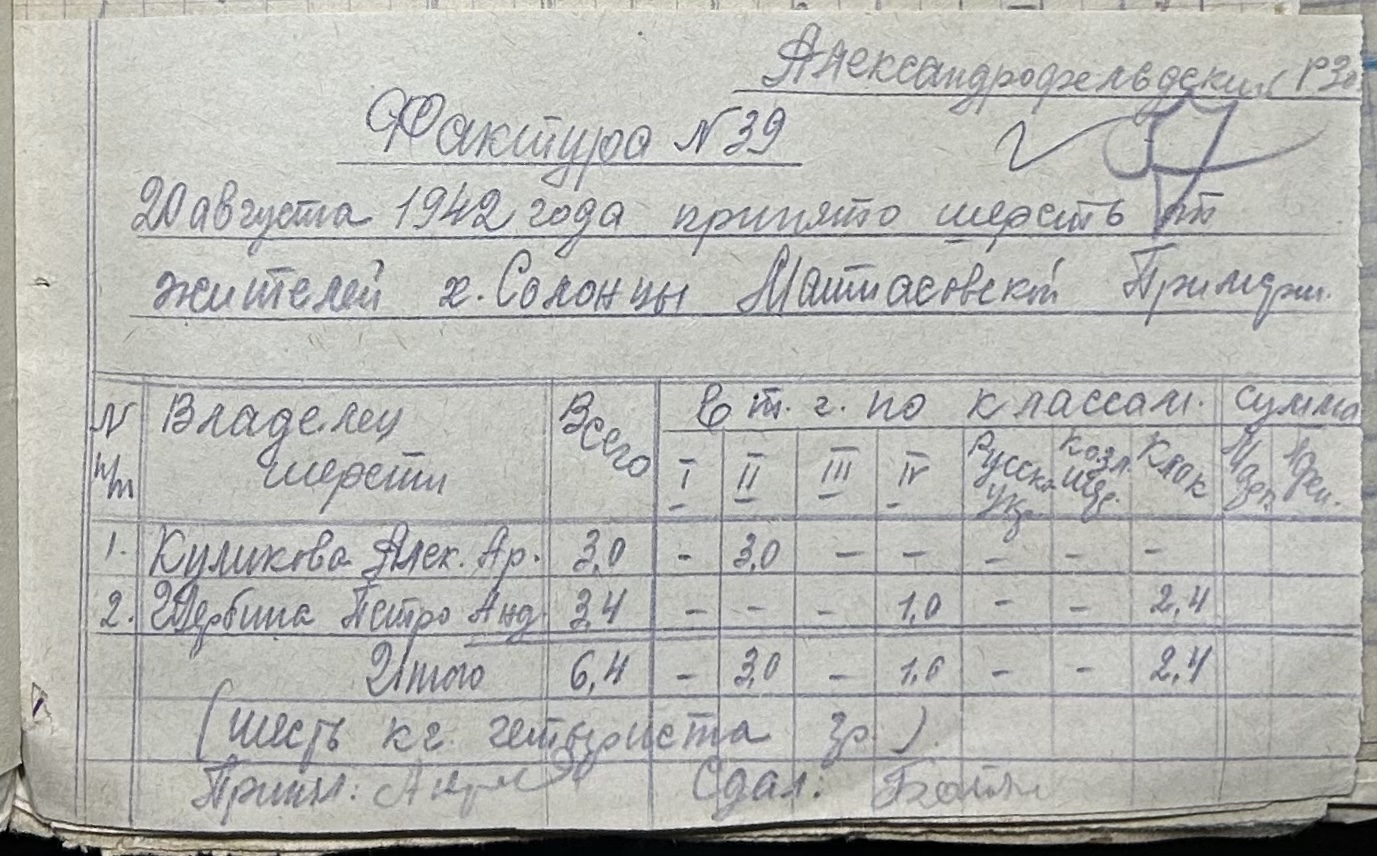 Александрофельдский РЗо
Фактура N 39
20 августа 1942 года принято шерсть от
жителей х. Солонцы Матиасовской Примэри.
N п/п Владелец шерсти Всего В т. ч. по классам. Сумма
I II III IV Русска Козл. Клок Мар. Пфен.
1. Куликова Алек. Ар. 3,0 - 3,0 - - - - -
2. Щербина Петро Анд. 3,4 - - - 1,0 - - 2,4
Итого 6,4 - 3,0 - 1,0 - - 2,4
(шесть кг. четыриста гр.).
Принял: Сдал: